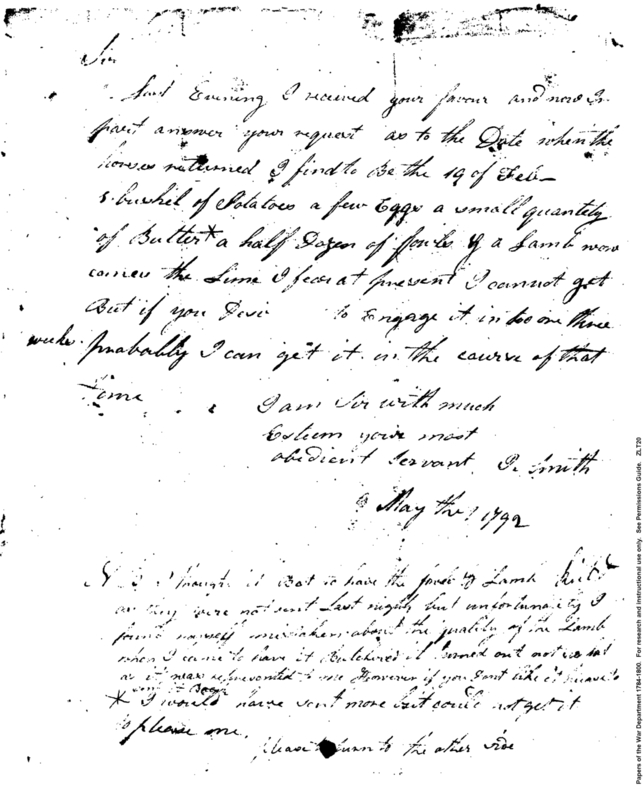 Sir
Last Evening I received your favour and now In
part answer your request as to the Date when the
horses returned I find to Be the 19 of Feb
5 bushel of Potatoes a few Eggs a small quantity
of Butter* a half Dozen of fowls & a Lamb now
comes the Lime I fear at present I cannot get
But if you to Engage it in two or three
weeks probably I can get it in the course of that
time
I am Sir with much
Esteem your most
obedient Servant P. Smith
May the 1792
N B I thought it Best to have the fowls & Lamb
as they were not sent Last night but unfortunately I
found myself mistaken about the quality of the Lamb
when I came to have it Butchered it turned out not so fat
as it was represented to me However if you Dont like it
sent it Back
* I would have sent more but could not get it
to please me.
please to turn to the other side
Papers of the War Department 1784-1800. For research and instructional use only. See Permissions Guide. ZLT20